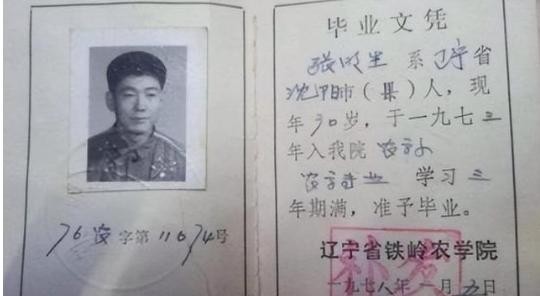 毕业文凭
系辽宁省
沈阳市（县）人，现
年30岁，于一九七三
年入我院农学
农学专业 学习三
年期满，准予毕业。
辽宁省铁岭农学院
补发
一九七八年一月九日
76农字第11674号